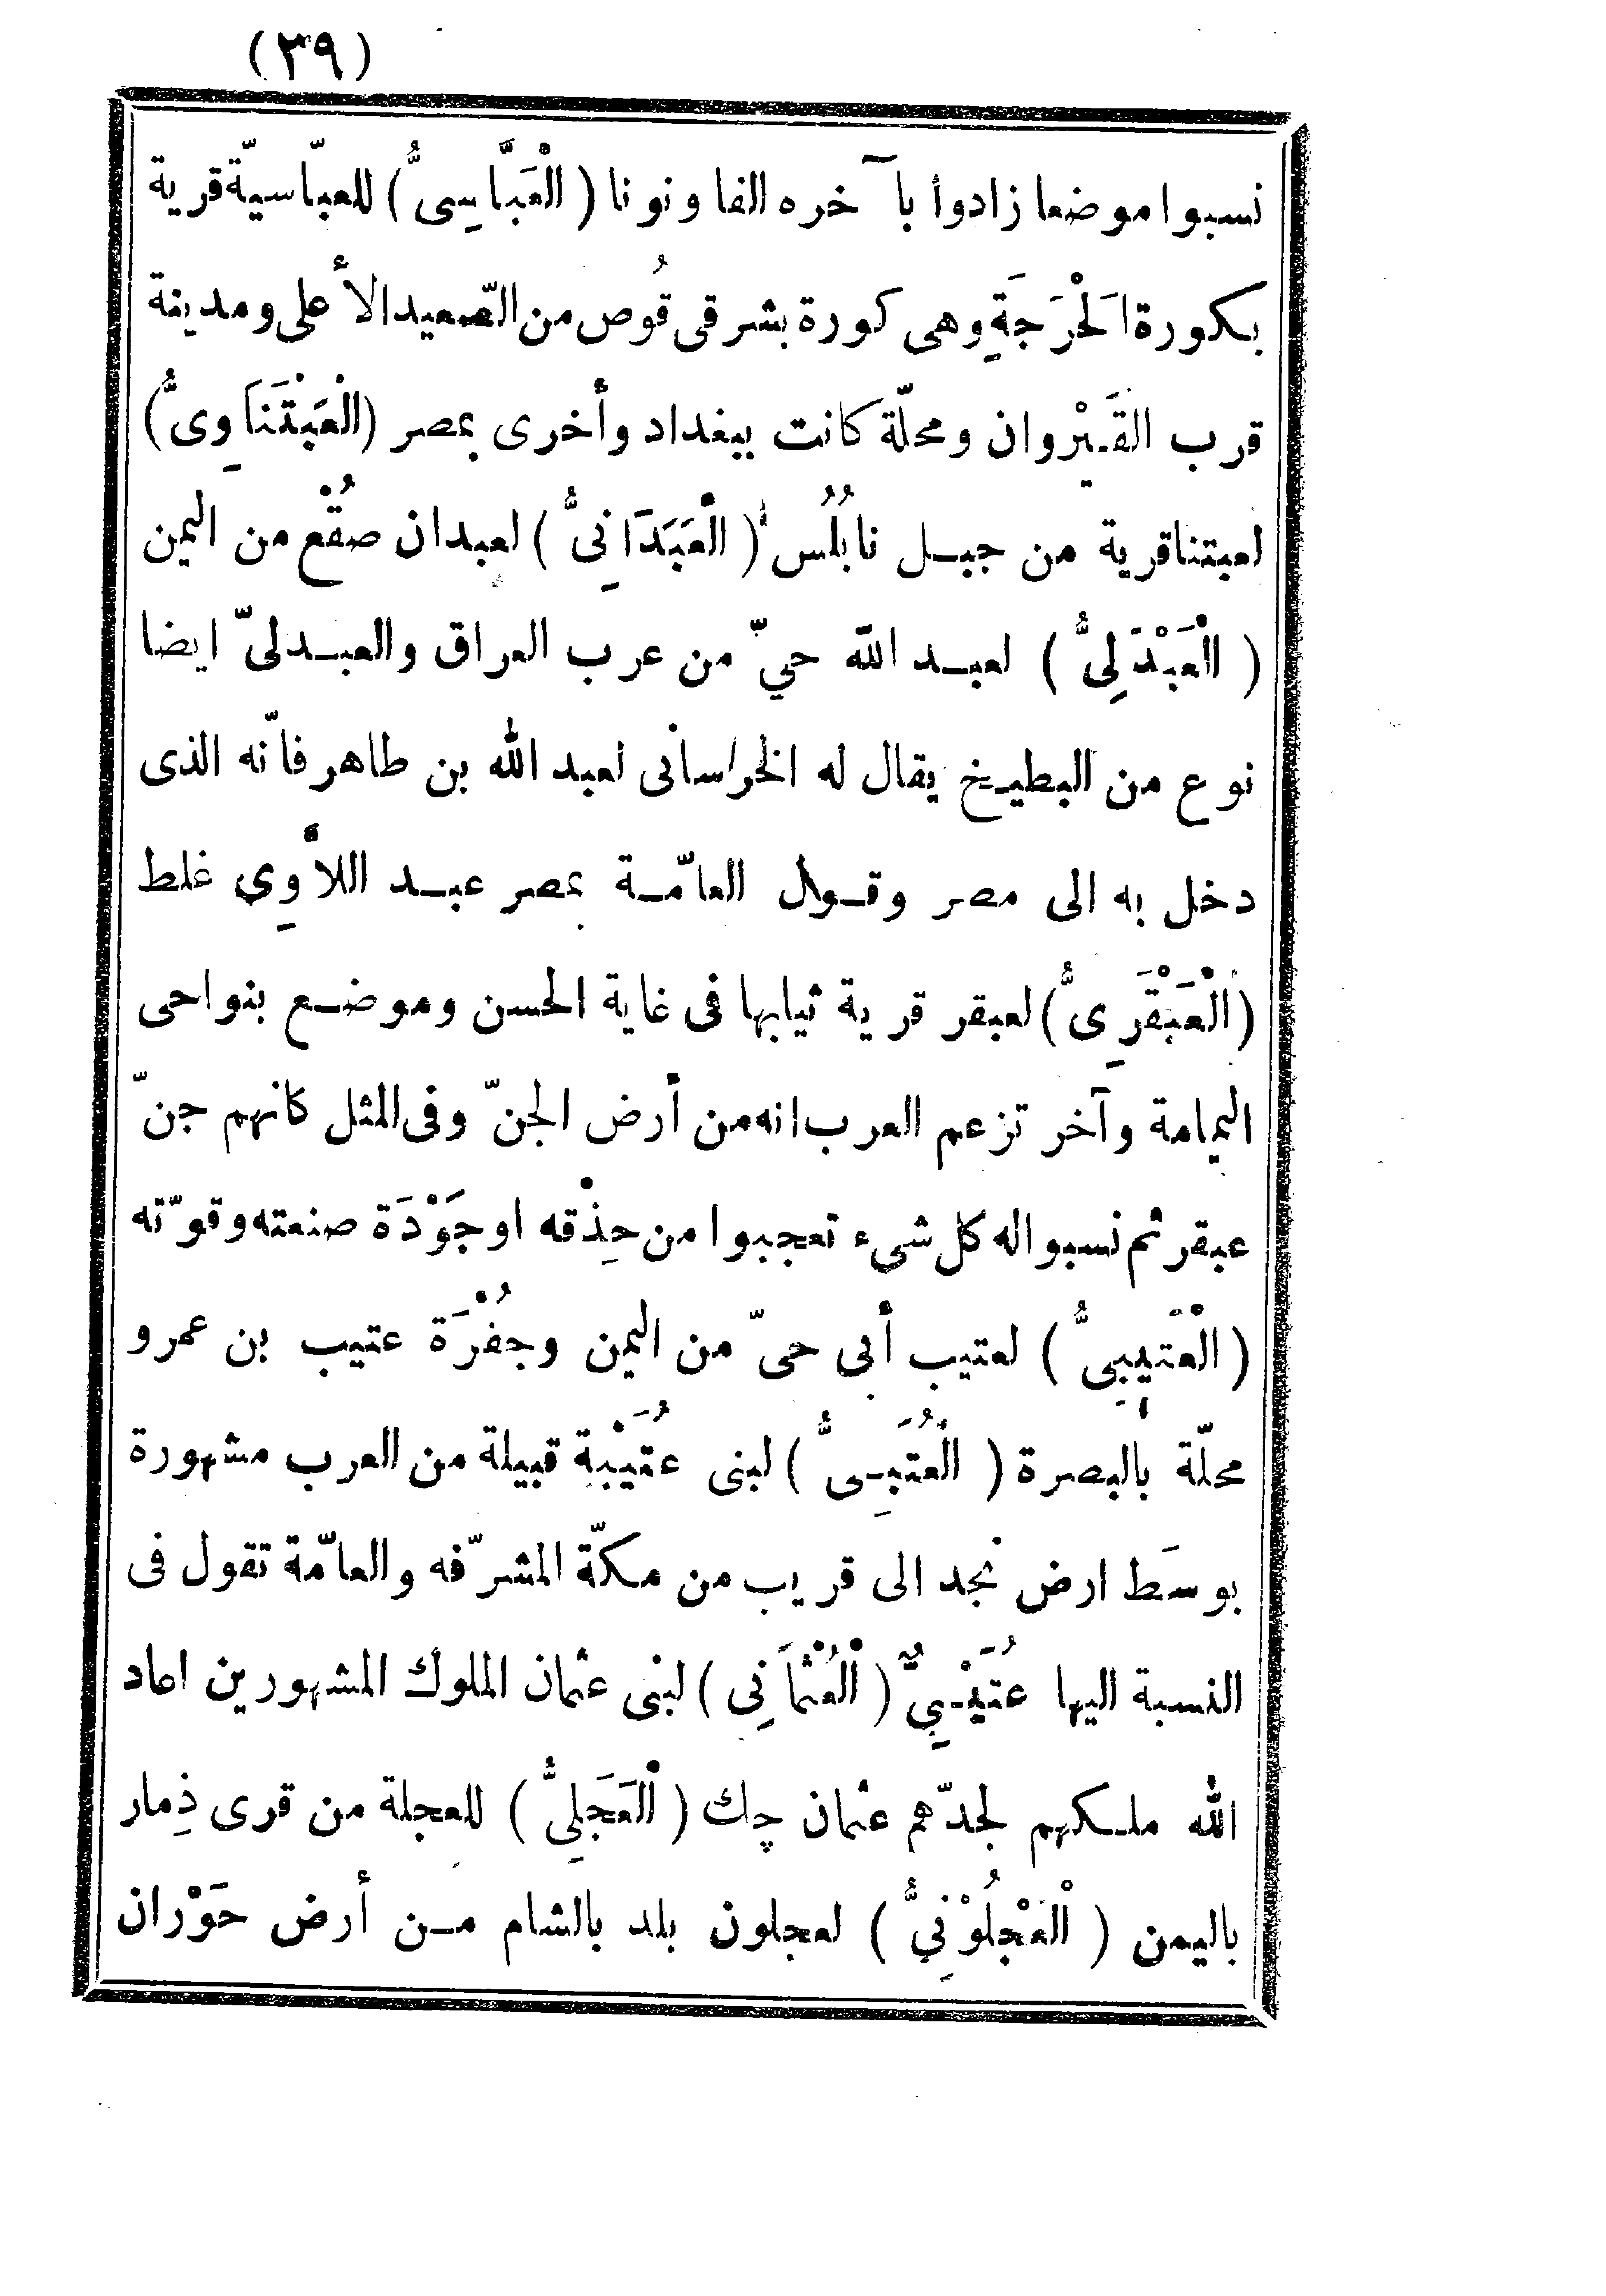 (٣٩)
نسبوا موضعا زادوا بآخره الفا ونونا (الْعَبَّاسِىُّ) للعبّاسيّة قرية
بكورة الْحَرَجَةِ وهى كورة بشرقى قُوص من الصّعيد الأعلى ومدينة
قرب القَيْروان ومحلّة كانت ببغداد وأخرى بمصر (الْعَبْتَنَاوِىُّ)
لعبتنا قرية من جبل نابُلُس (الْعَبَدَانِىُّ) لعبدان صُقْع من اليمن
(الْعَبْدَلِىُّ) لعبد الله حيّ من عرب العراق والعبدلىّ ايضا
نوع من البطيخ يقال له الخراسانى لعبد الله بن طاهر فانّه الذى
دخل به الى مصر وقول العامّة بمصر عبد اللأوِى غلط
(الْعَبْقَرِىُّ) لعبقر قرية ثيابها فى غاية الحسن وموضع بنواحى
اليمامة وآخر تزعم العرب انه من أرض الجنّ وفى المثل كانهم جنّ
عبقر ثم نسبوا له كل شىء تعجبوا من حِذْقه او جَوْدَة صنعته وقوّته
(الْعَتِيبِىُّ) لعتيب أبى حىّ من اليمن وجُفْرَة عتيب بن عمرو
محلّة بالبصرة (الْعُتَبِىُّ) لبنى عُتَيْبة قبيلة من العرب مشهورة
بوسَط ارض نجد الى قريب من مكّة المشرّفه والعامّة تقول فى
النسبة اليها عُتَيْبِىٌّ (الْعُثْمَانِى) لبنى عثمان الملوك المشهورين اعاد
الله ملكهم لجدّهم عثمان چك (الْعَجَلِىُّ) للعجلة من قرى ذِمار
باليمن (الْعَجْلُوْنِىُّ) لعجلون بلد بالشام من أرض حَوْران